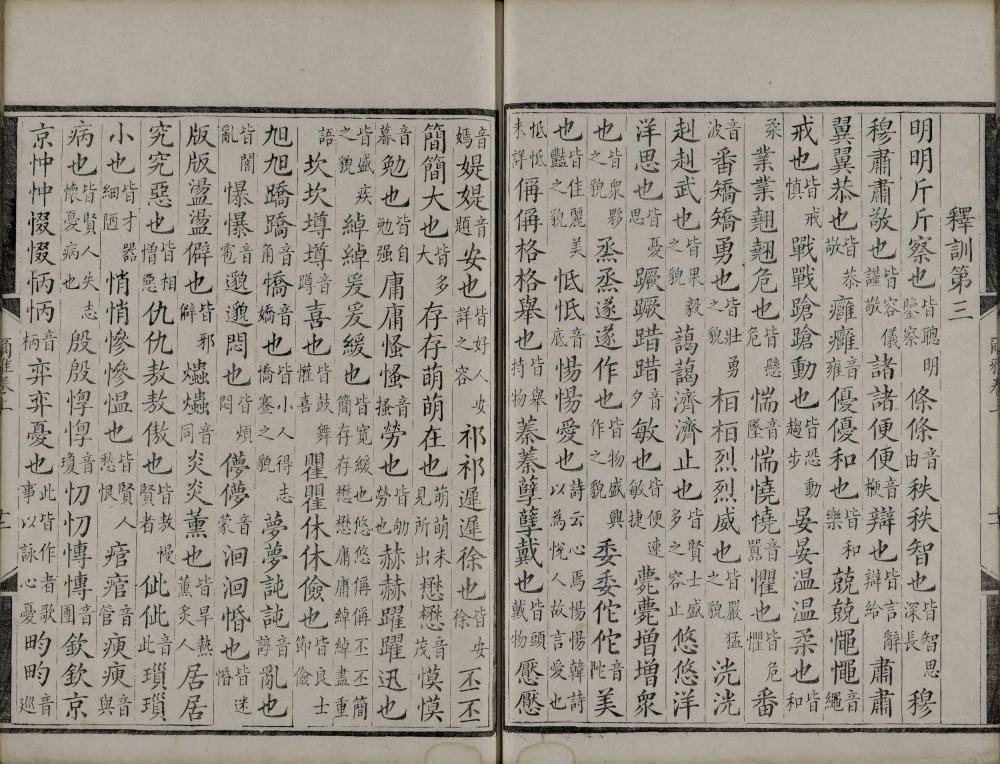 釋訓第三
明明斤斤察也皆聰明鑒察條條音由秩秩智也皆智思深長穆
穆肅肅敬也皆容儀謹敬諸諸便便音梗辯也皆言辭辯給肅肅
翼翼恭也皆恭敬廱廱音雍優優和也皆和樂兢兢憴憴音繩
戒也皆戒慎戰戰蹌蹌動也皆恐動趨步晏晏温温柔也皆和
柔業業翹翹危也皆懸危惴惴音墜憢憢音嚚懼也皆危懼番
番音波矯矯勇也皆壯勇之貌桓桓烈烈威也皆嚴猛之貌洸洸
赳赳武也皆果毅之貌藹藹濟濟止也皆賢士盛多之容止悠悠洋
洋思也皆憂思蹶蹶踖踖音夕敏也皆便速敏捷薨薨增增衆
也皆衆夥之貌烝烝遂遂作也皆物盛興作之貌委委佗佗音陁美
也皆佳麗美豔之貌忯忯音底惕惕愛也詩云心焉惕惕韓詩以為悅人故言愛也
忯忯未詳偁偁格格舉也皆舉持物蓁蓁孽孽戴也皆頭戴物懕懕
音嫣媞媞音題安也皆好人安詳之容祁祁遲遲徐也皆安徐丕丕
簡簡大也皆多大存存萌萌在也萌萌未見所出懋懋音茂慔慔
音暮勉也皆自勉強庸庸慅慅音搔勞也皆劬勞也赫赫躍躍迅也
皆盛疾之貌綽綽爰爰緩也皆寬緩也悠悠偁偁丕丕簡簡存存懋懋庸庸綽綽盡重
語坎坎墫墫音蹲喜也皆鼓舞懽喜瞿瞿休休儉也皆良士節儉
旭旭蹻蹻音角憍音嬌也皆小人得志憍蹇之貌夢夢訰訰音諄亂也
皆闇亂懪懪音雹邈邈悶也皆煩悶儚儚音蒙洄洄惛也皆迷惛
版版盪盪僻也皆邪僻爞爞音同炎炎薰也皆旱熱薰炙人居居
究究惡也皆相憎惡仇仇敖敖傲也皆敖慢賢者佌佌音此瑣瑣
小也皆才器細陋悄悄慘慘愠也皆賢人愁恨痯痯音管瘐瘐音與
病也皆賢人失志懷憂病也殷殷惸惸音瓊忉忉慱慱音團欽欽京
京忡忡惙惙怲怲音柄弈弈憂也此皆作者歌事以詠心憂畇畇音巡